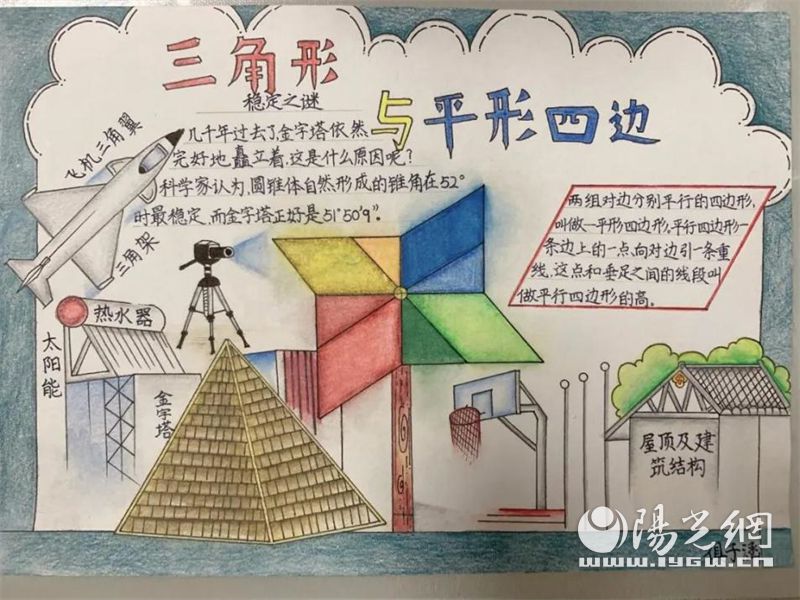 三角形
与平形四边
稳定之谜
几千年过去了,金字塔依然
完好地矗立着,这是什么原因呢?
科学家认为,圆锥体自然形成的锥角在52°
时最稳定,而金字塔正好是51°50′9″。
飞机三角翼
三角架
两组对边分别平行的四边形,
叫做一平形四边形,平行四边形一
条边上的一点,向对边引一条垂
线,这点和垂足之间的线段叫
做平行四边形的高。
热水器
太阳能
金字塔
屋顶及建
筑结构
陽光網
www.iygw.cn